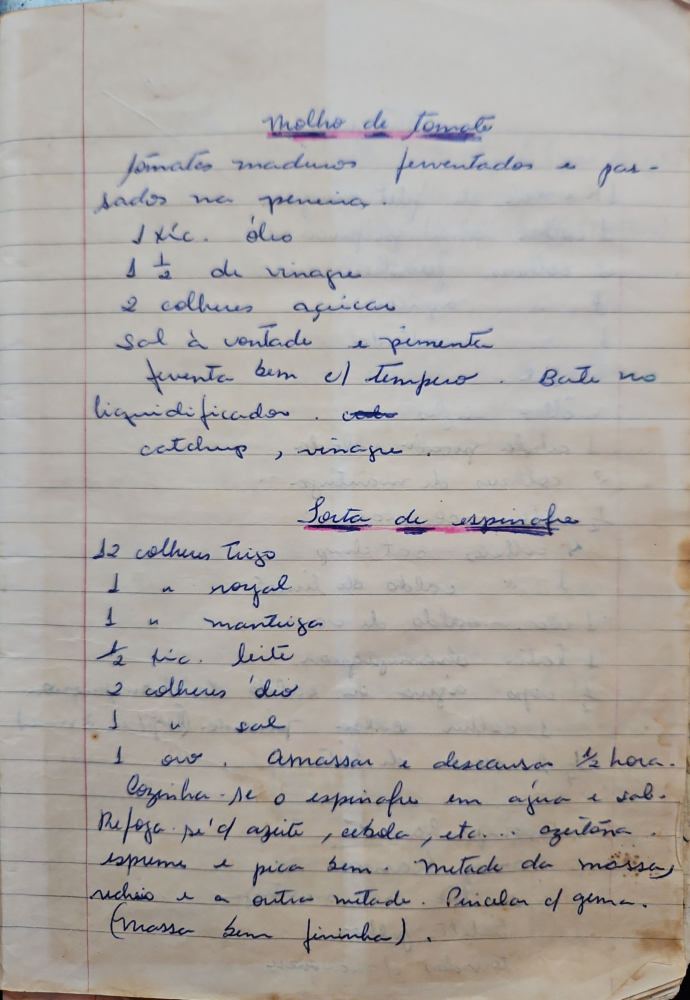 Molho de tomate
Tomates maduros ferventados e pas-
sados na peneira.
1 xíc. óleo
1 1/2 de vinagre
2 colheres açúcar
sal à vontade e pimenta
ferventa bem c/ tempero. Bate no
liquidificador.
catchup, vinagre.
Torta de espinafre
12 colheres trigo
1 " royal
1 " manteiga
1/2 xíc. leite
2 colheres óleo
1 " sal
1 ovo. Amassar e descansar 1/2 hora.
Cozinha-se o espinafre em água e sal.
Refoga-se c/ azeite, cebola, etc... azeitona.
espreme e pica bem. Metade da massa,
recheio e a outra metade. Pincelar c/ gema.
(Massa bem fininha).